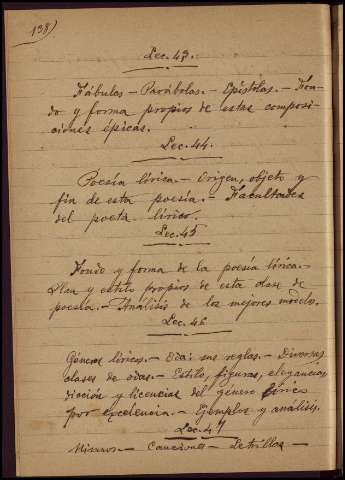 198)
Lec. 43.
Fábulas — Parábolas. — Epístolas. — Fon-
do y forma propios de estas composi-
ciones épicas.
Lec. 44.
Poesía lírica. — Origen, objeto y
fin de esta poesía. — Facultades
del poeta lírico.
Lec. 45
Fondo y forma de la poesía lírica. —
Plan y estilo propios de esta clase de
poesía. — Análisis de los mejores modelos.
Lec. 46
Géneros líricos. — Oda: sus reglas. — Diversas
clases de odas. — Estilo, figuras, elegancias
dicción y licencias del género lírico
por excelencia. — Ejemplos y análisis.
Lec. 47
Himnos — Canciones — Letrillas —